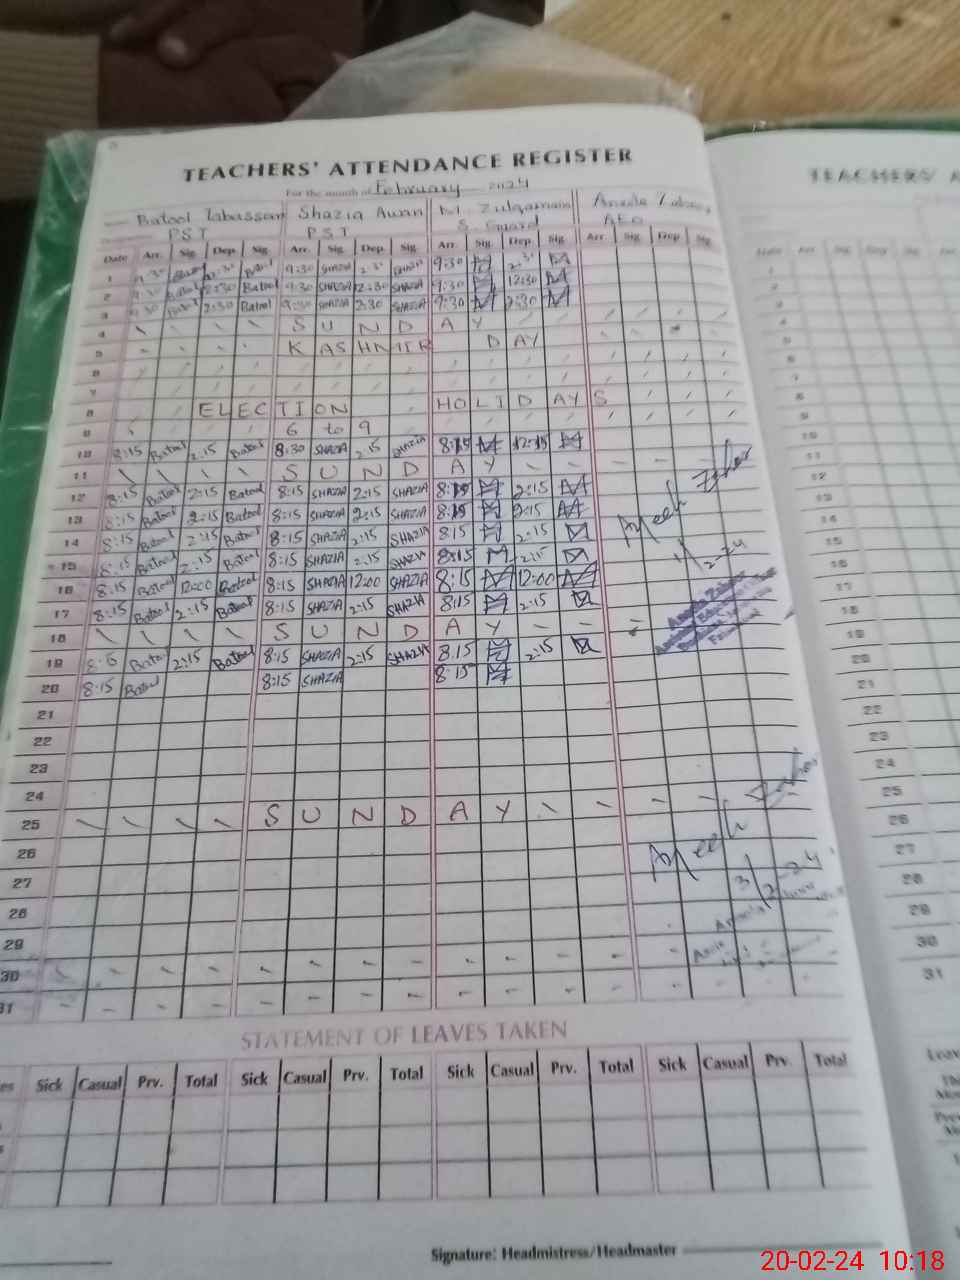 TEACHERS' ATTENDANCE REGISTER
For the month of February 2024
Batool Tabassam Shazia Awan Zulqarnain
PST PST S. Guard AEO
Date Arr. Sig. Dep. Sig. Arr. Sig. Dep. Sig. Arr. Sig. Dep. Sig. Arr. Sig. Dep. Sig.
1 9:30 Batool 9:30 SHAZIA 2:30 SHAZIA 9:30 2:30
2 9:30 Batool 12:30 Batool 9:30 SHAZIA 12:30 SHAZIA 9:30 12:30
3 9:30 Batool 2:30 Batool 9:30 SHAZIA 2:30 SHAZIA 9:30 2:30
4 SUNDAY
5 KASHMIR DAY
6
7
8 ELECTION HOLIDAYS
9 6 to 9
10 8:15 Batool 2:15 Batool 8:30 SHAZIA 2:15 SHAZIA 8:15 12:15
11 SUNDAY
12 8:15 Batool 2:15 Batool 8:15 SHAZIA 2:15 SHAZIA 8:15 2:15
13 8:15 Batool 2:15 Batool 8:15 SHAZIA 2:15 SHAZIA 8:15 2:15
14 8:15 Batool 2:15 Batool 8:15 SHAZIA 2:15 SHAZIA 8:15 2:15
15 8:15 Batool 2:15 Batool 8:15 SHAZIA 2:15 SHAZIA 8:15 2:15
16 8:15 Batool 12:00 Batool 8:15 SHAZIA 12:00 SHAZIA 8:15 12:00
17 8:15 Batool 2:15 Batool 8:15 SHAZIA 2:15 SHAZIA 8:15 2:15
18 SUNDAY
19 Batool 2:15 Batool 8:15 SHAZIA 2:15 SHAZIA 8:15 2:15
20 8:15 Batool 8:15 SHAZIA 8:15
21
22
23
24
25 SUNDAY
26
27
28
29
30
31
STATEMENT OF LEAVES TAKEN
Sick Casual Prv. Total Sick Casual Prv. Total Sick Casual Prv. Total Sick Casual Prv. Total
Signature: Headmistress/Headmaster
TEACHERS' A
20-02-24 10:18